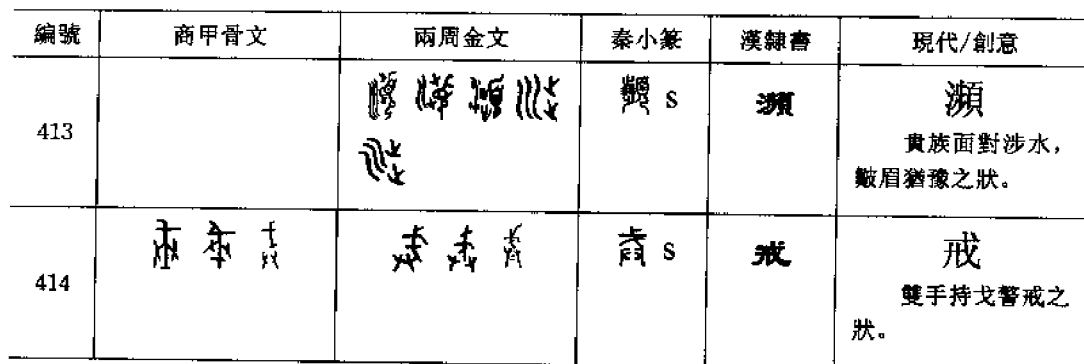 編號 商甲骨文 兩周金文 秦小篆 漢隸書 現代/創意
413 S 瀕 瀕
貴族面對涉水，
皺眉猶豫之狀。
414 S 戒 戒
雙手持戈警戒之
狀。